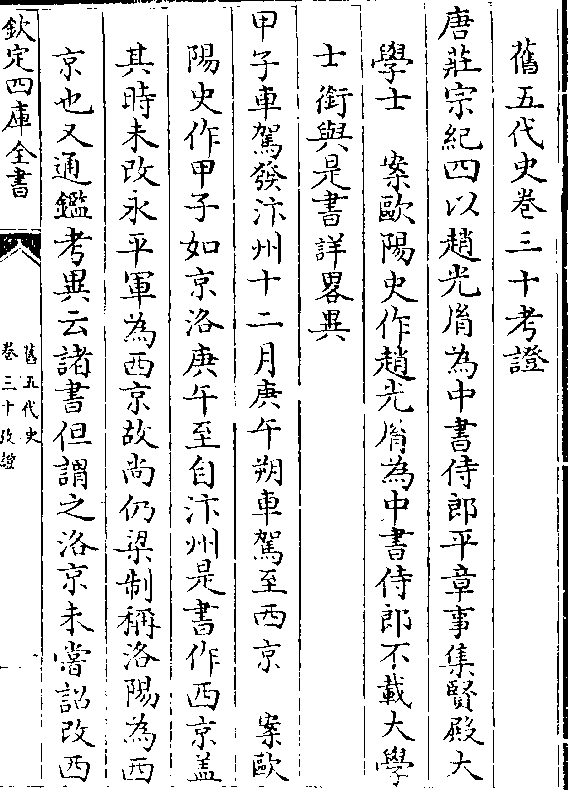 舊五代史卷三十考證
唐莊宗紀四以趙光𦙍為中書侍郎平章事集賢殿大
學士　案歐陽史作趙光𦙍為中書侍郎不載大學
士銜與是書詳畧異
甲子車駕發汴州十二月庚午朔車駕至西京　案歐
陽史作甲子如京洛庚午至自汴州是書作西京盖
其時未改永平軍為西京故尚仍梁制稱洛陽為西
京也又通鑑考異云諸書但謂之洛京未嘗詔改西
欽定四庫全書
舊五代史
卷三十攷證